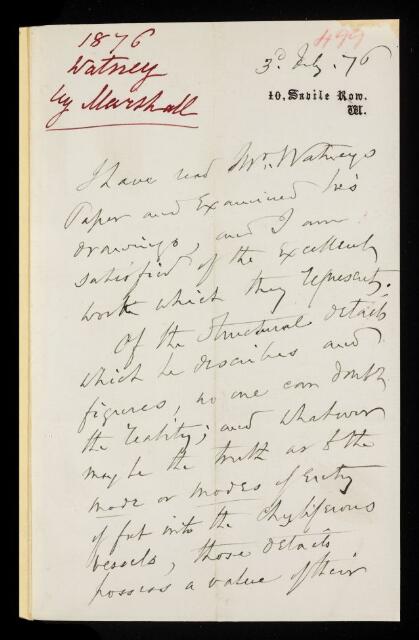 1876
Watney
by Marshall
499
3d July. 76
10, Savile Row.
W.
I have read Mr. Watney's
Paper and Examined his
drawings, and I am
satisfied of the Excellent
work which they represent.
Of the Structural details
which he describes and
figures, no one can doubt
the reality; and whatever
may be the truth as to the
mode or modes of Entry
of fat into the Chyliferous
vessels, those details
possess a value of their